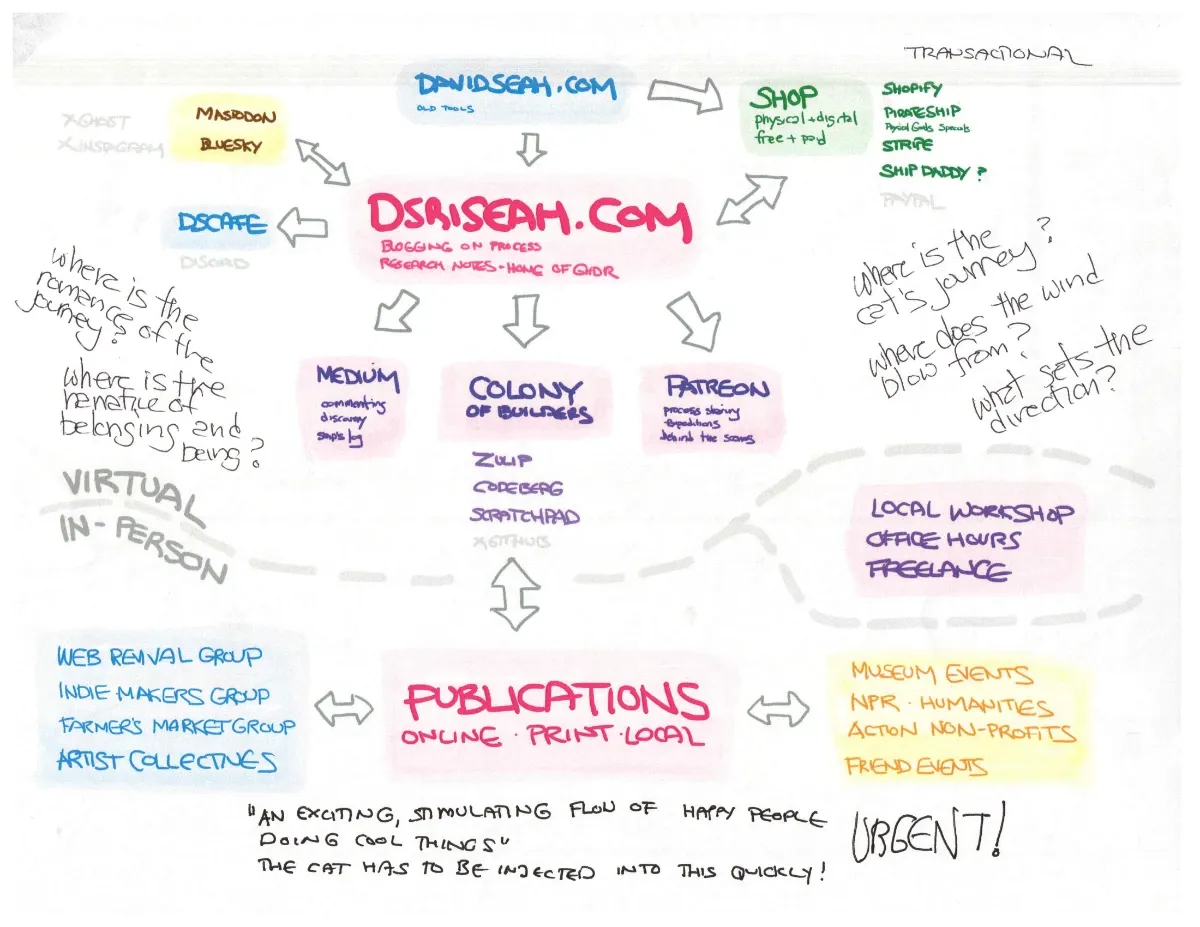 TRANSACTIONAL
DAVIDSEAH.COM
OLD TOOLS
SHOP
physical + digital
free + paid
SHOPIFY
PIRATESHIP
Physical Goods Specials
STRIPE
SHIP DADDY?
PAYPAL
X GHOST
X INSTAGRAM
MASTODON
BLUESKY
DSRISEAH.COM
BLOGGING ON PROCESS
RESEARCH NOTES - HOME OF GHDR
DSCAFE
DISCORD
where is the
romance of the
journey?
where is the
narrative of
belonging and
being?
where is the
cat's journey?
where does the wind
blow from?
what sets the
direction?
MEDIUM
commenting
discovery
COLONY
OF BUILDERS
PATREON
process sharing
Expeditions
behind the scenes
ZULIP
CODEBERG
SCRATCHPAD
X GITHUB
VIRTUAL
IN-PERSON
LOCAL WORKSHOP
OFFICE HOURS
FREELANCE
WEB REVIVAL GROUP
INDIE MAKERS GROUP
FARMER'S MARKET GROUP
ARTIST COLLECTIVES
PUBLICATIONS
ONLINE · PRINT · LOCAL
MUSEUM EVENTS
NPR · HUMANITIES
ACTION NON-PROFITS
FRIEND EVENTS
"AN EXCITING, STIMULATING FLOW OF HAPPY PEOPLE
DOING COOL THINGS"
THE CAT HAS TO BE INJECTED INTO THIS QUICKLY!
URGENT!